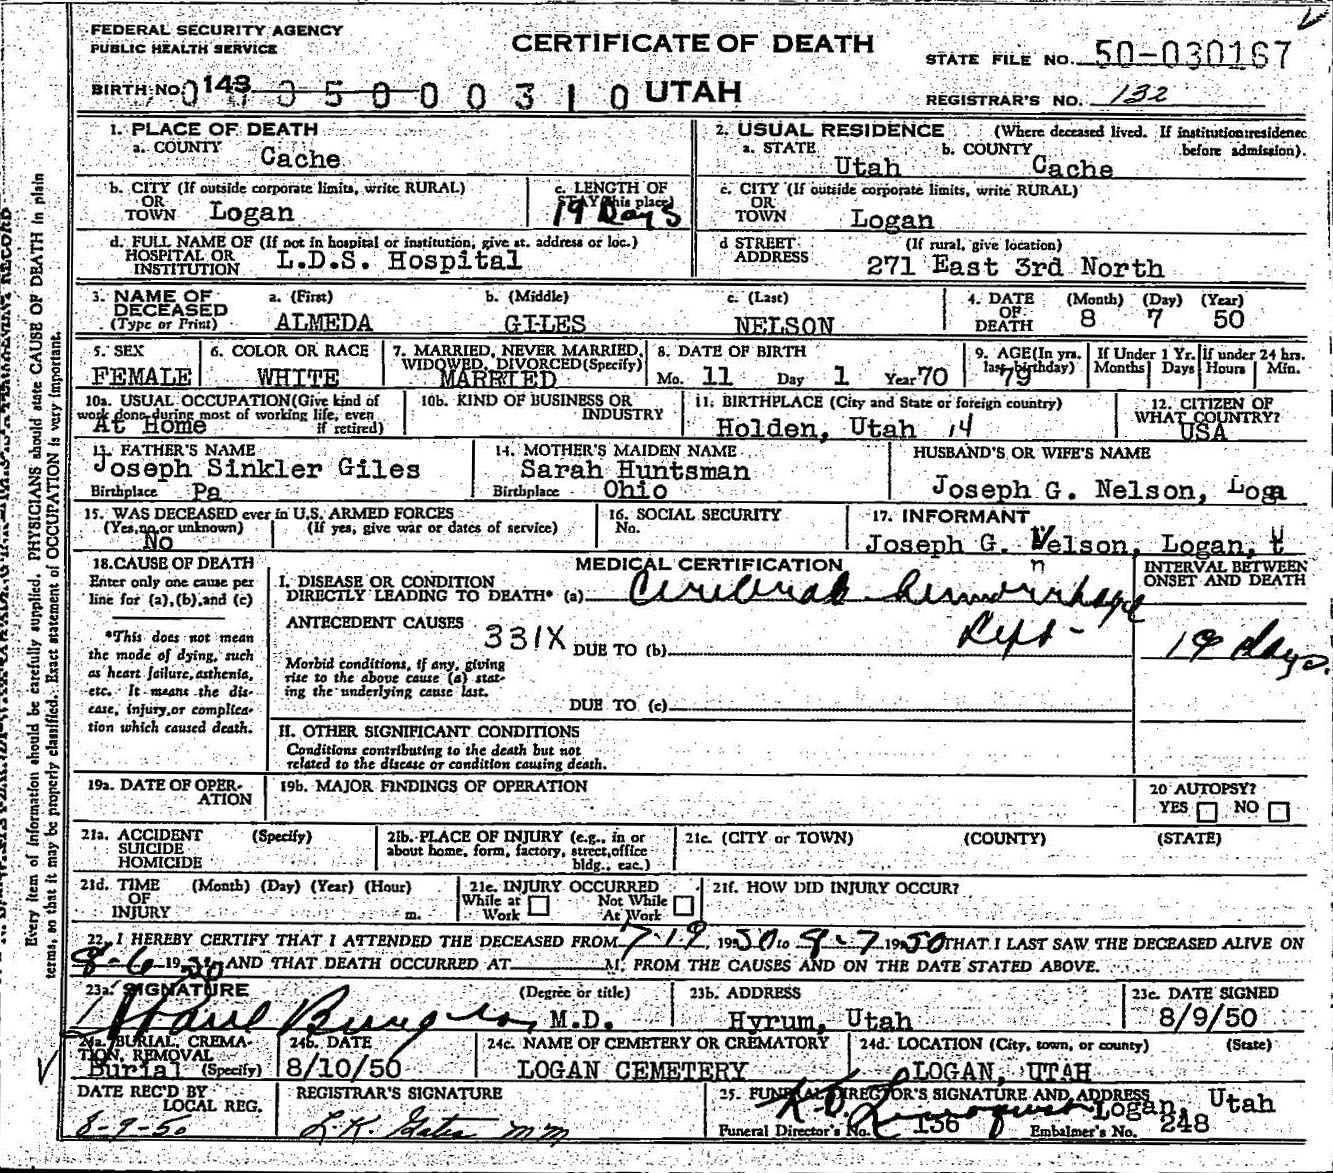 FEDERAL SECURITY AGENCY
PUBLIC HEALTH SERVICE
CERTIFICATE OF DEATH
STATE FILE NO. 50-030167
BIRTH NO. 0 143 0 5 0 0 0 3 1 0 UTAH
REGISTRAR'S NO. 132
1. PLACE OF DEATH
a. COUNTY Cache
2. USUAL RESIDENCE (Where deceased lived. If institution:residenc before admission).
a. STATE Utah b. COUNTY Cache
b. CITY (If outside corporate limits, write RURAL)
OR
TOWN Logan
c. LENGTH OF
STAY (this place)
19 Days
c. CITY (If outside corporate limits, write RURAL)
OR
TOWN Logan
d. FULL NAME OF (If not in hospital or institution, give st. address or loc.)
HOSPITAL OR
INSTITUTION L.D.S. Hospital
d STREET (If rural, give location)
ADDRESS 271 East 3rd North
3. NAME OF
DECEASED
(Type or Print)
a. (First) b. (Middle) c. (Last)
ALMEDA GILES NELSON
4. DATE
OF
DEATH
(Month) (Day) (Year)
8 7 50
5. SEX
FEMALE
6. COLOR OR RACE
WHITE
7. MARRIED, NEVER MARRIED,
WIDOWED, DIVORCED(Specify)
MARRIED
8. DATE OF BIRTH
Mo. 11 Day 1 Year 70
9. AGE(In yrs.
last birthday)
79
If Under 1 Yr.
Months Days
If under 24 hrs.
Hours Min.
10a. USUAL OCCUPATION(Give kind of
work done during most of working life, even
if retired)
At Home
10b. KIND OF BUSINESS OR
INDUSTRY
11. BIRTHPLACE (City and State or foreign country)
Holden, Utah 14
12. CITIZEN OF
WHAT COUNTRY?
USA
13. FATHER'S NAME
Joseph Sinkler Giles
Birthplace Pa
14. MOTHER'S MAIDEN NAME
Sarah Huntsman
Birthplace Ohio
HUSBAND'S OR WIFE'S NAME
Joseph G. Nelson, Loga
15. WAS DECEASED ever in U.S. ARMED FORCES
(Yes,no,or unknown) (If yes, give war or dates of service)
No
16. SOCIAL SECURITY
No.
17. INFORMANT
Joseph G. Nelson, Logan, Ut
n
18. CAUSE OF DEATH
Enter only one cause per
line for (a),(b),and (c)
*This does not mean
the mode of dying, such
as heart failure,asthenia,
etc. It means the dis-
ease, injury,or complica-
tion which caused death.
MEDICAL CERTIFICATION
INTERVAL BETWEEN
ONSET AND DEATH
I. DISEASE OR CONDITION
DIRECTLY LEADING TO DEATH* (a) Cerebral hemorrhage
ANTECEDENT CAUSES
331X DUE TO (b)
19 days.
Morbid conditions, if any, giving
rise to the above cause (a) stat-
ing the underlying cause last.
DUE TO (c)
II. OTHER SIGNIFICANT CONDITIONS
Conditions contributing to the death but not
related to the disease or condition causing death.
19a. DATE OF OPER-
ATION
19b. MAJOR FINDINGS OF OPERATION
20 AUTOPSY?
YES NO
21a. ACCIDENT (Specify)
SUICIDE
HOMICIDE
21b. PLACE OF INJURY (e.g., in or
about home, form, factory, street,office
bldg., eac.)
21c. (CITY or TOWN) (COUNTY) (STATE)
21d. TIME (Month) (Day) (Year) (Hour)
OF
INJURY m.
21e. INJURY OCCURRED
While at Not While
Work At Work
21f. HOW DID INJURY OCCUR?
22. I HEREBY CERTIFY THAT I ATTENDED THE DECEASED FROM 7-19, 1950 to 8-7 1950 THAT I LAST SAW THE DECEASED ALIVE ON
8-6 1950 AND THAT DEATH OCCURRED AT M. FROM THE CAUSES AND ON THE DATE STATED ABOVE.
23a. SIGNATURE (Degree or title)
M.D.
23b. ADDRESS
Hyrum, Utah
23c. DATE SIGNED
8/9/50
24a. BURIAL, CREMA-
TION, REMOVAL
Burial (Specify)
24b. DATE
8/10/50
24c. NAME OF CEMETERY OR CREMATORY
LOGAN CEMETERY
24d. LOCATION (City, town, or county) (State)
LOGAN, UTAH
DATE REC'D BY
LOCAL REG.
8-9-50
REGISTRAR'S SIGNATURE
L.K. Gates MM
25. FUNERAL DIRECTOR'S SIGNATURE AND ADDRESS
Logan, Utah
Funeral Director's No. 136 Embalmer's No. 248
Every item of information should be carefully supplied. PHYSICIANS should state CAUSE OF DEATH in plain
terms, so that it may be properly classified. Exact statement of OCCUPATION is very important.